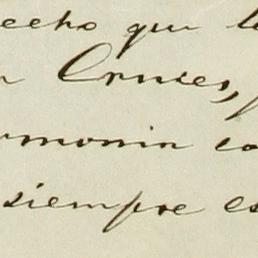 echo que l
n Cruces,
rmonia co
siempre es